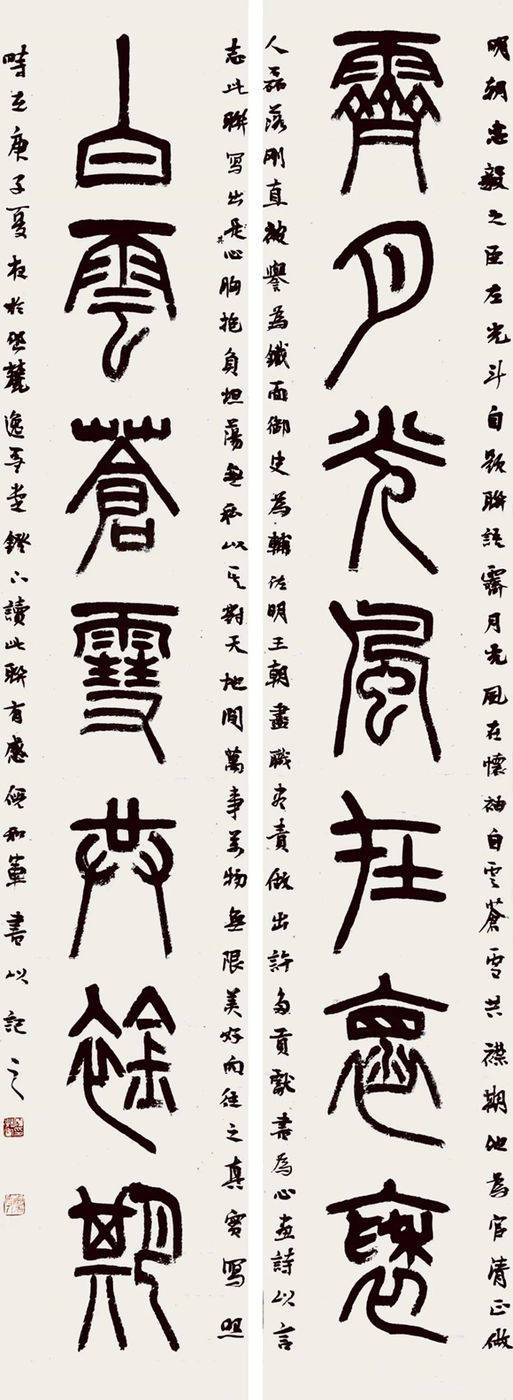 明朝忠毅之臣左光斗自題聯語霽月光風在懷袖白雲蒼雪共襟期他為官清正做
霽月光風在褱褎
人磊落剛直被譽為鐵面御史為輔佐明王朝盡職盡責做出許多貢獻書為心畫詩以言
志此聯寫出心胸抱負坦蕩無私以對天地間萬事萬物無限美好向往之真實寫照
白雲蒼雪共襟期
時在庚子夏夜於麓逸吾堂鐙下讀此聯有感倪和軍書以記之